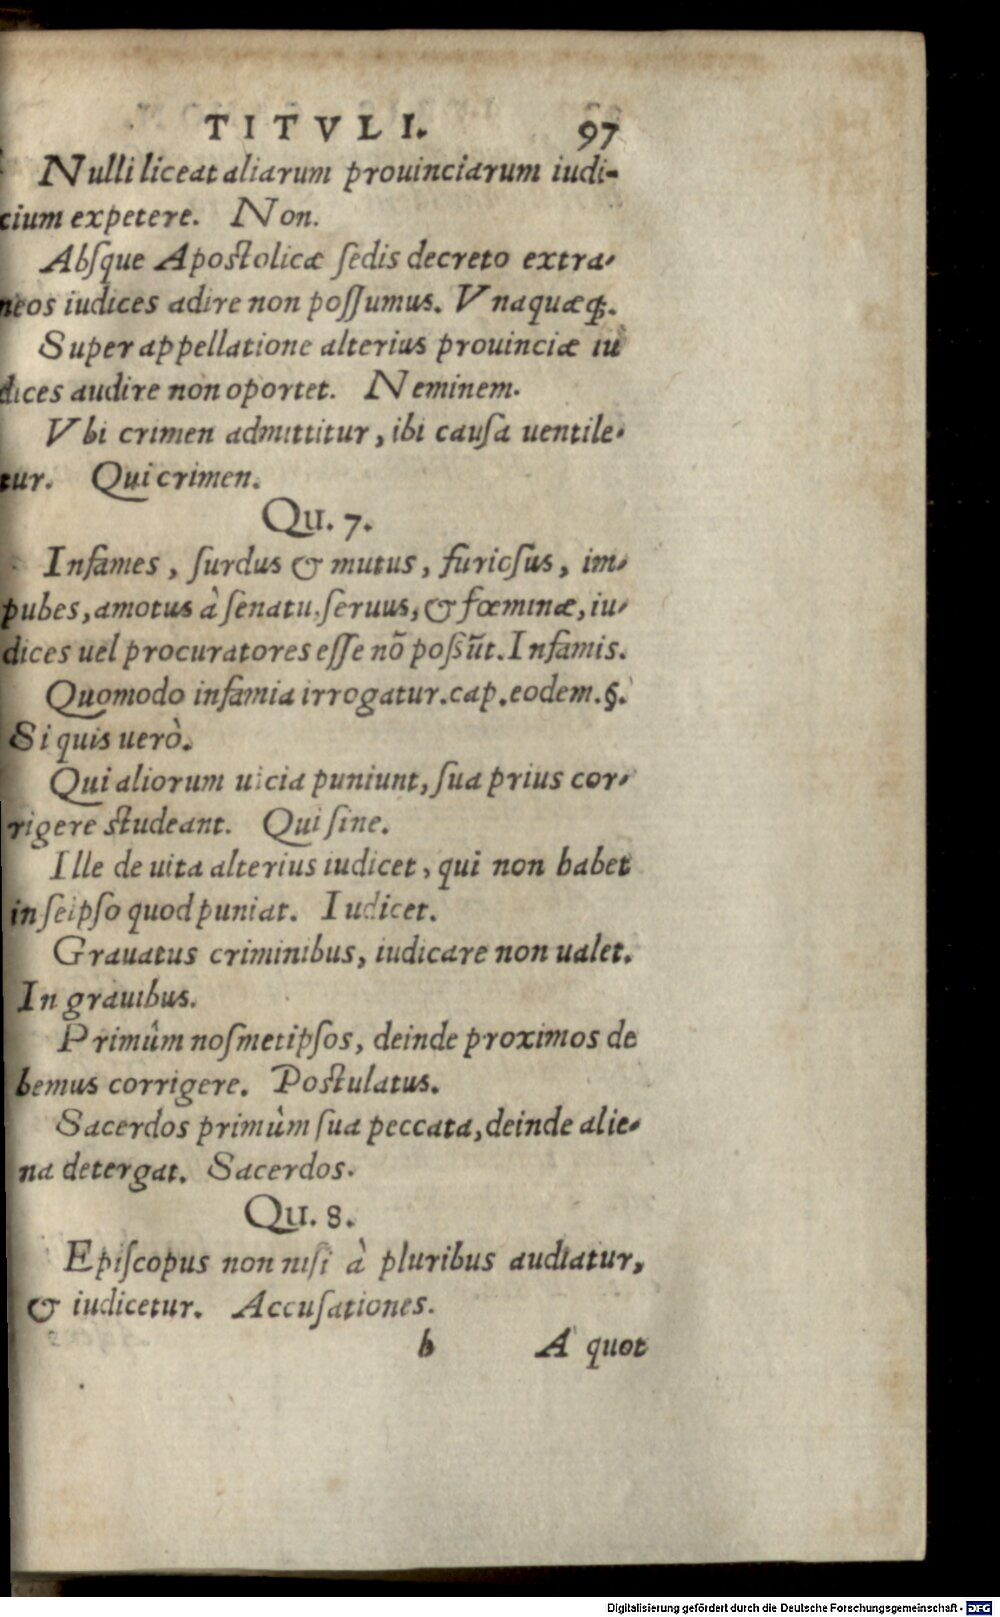 TITVLI. 97
Nulli liceat aliarum prouinciarum iudi-
cium expetere. Non.
Absque Apostolicæ sedis decreto extra-
neos iudices adire non possumus. Vnaquæq;.
Super appellatione alterius prouinciæ iu
dices audire non oportet. Neminem.
Vbi crimen admittitur, ibi causa uentile-
tur. Qui crimen.
Qu. 7.
Infames, surdus & mutus, furiosus, im-
pubes, amotus à senatu, seruus, & fœminæ, iu-
dices uel procuratores esse nō possūt. Infamis.
Quomodo infamia irrogatur. cap. eodem. §.
Si quis uerò.
Qui aliorum uicia puniunt, sua prius cor-
rigere studeant. Qui sine.
Ille de uita alterius iudicet, qui non habet
in seipso quod puniat. Iudicet.
Grauatus criminibus, iudicare non ualet.
In grauibus.
Primùm nosmetipsos, deinde proximos de
bemus corrigere. Postulatus.
Sacerdos primùm sua peccata, deinde alie-
na detergat. Sacerdos.
Qu. 8.
Episcopus non nisi à pluribus audiatur,
& iudicetur. Accusationes.
h A quot
Digitalisierung gefördert durch die Deutsche Forschungsgemeinschaft - DFG